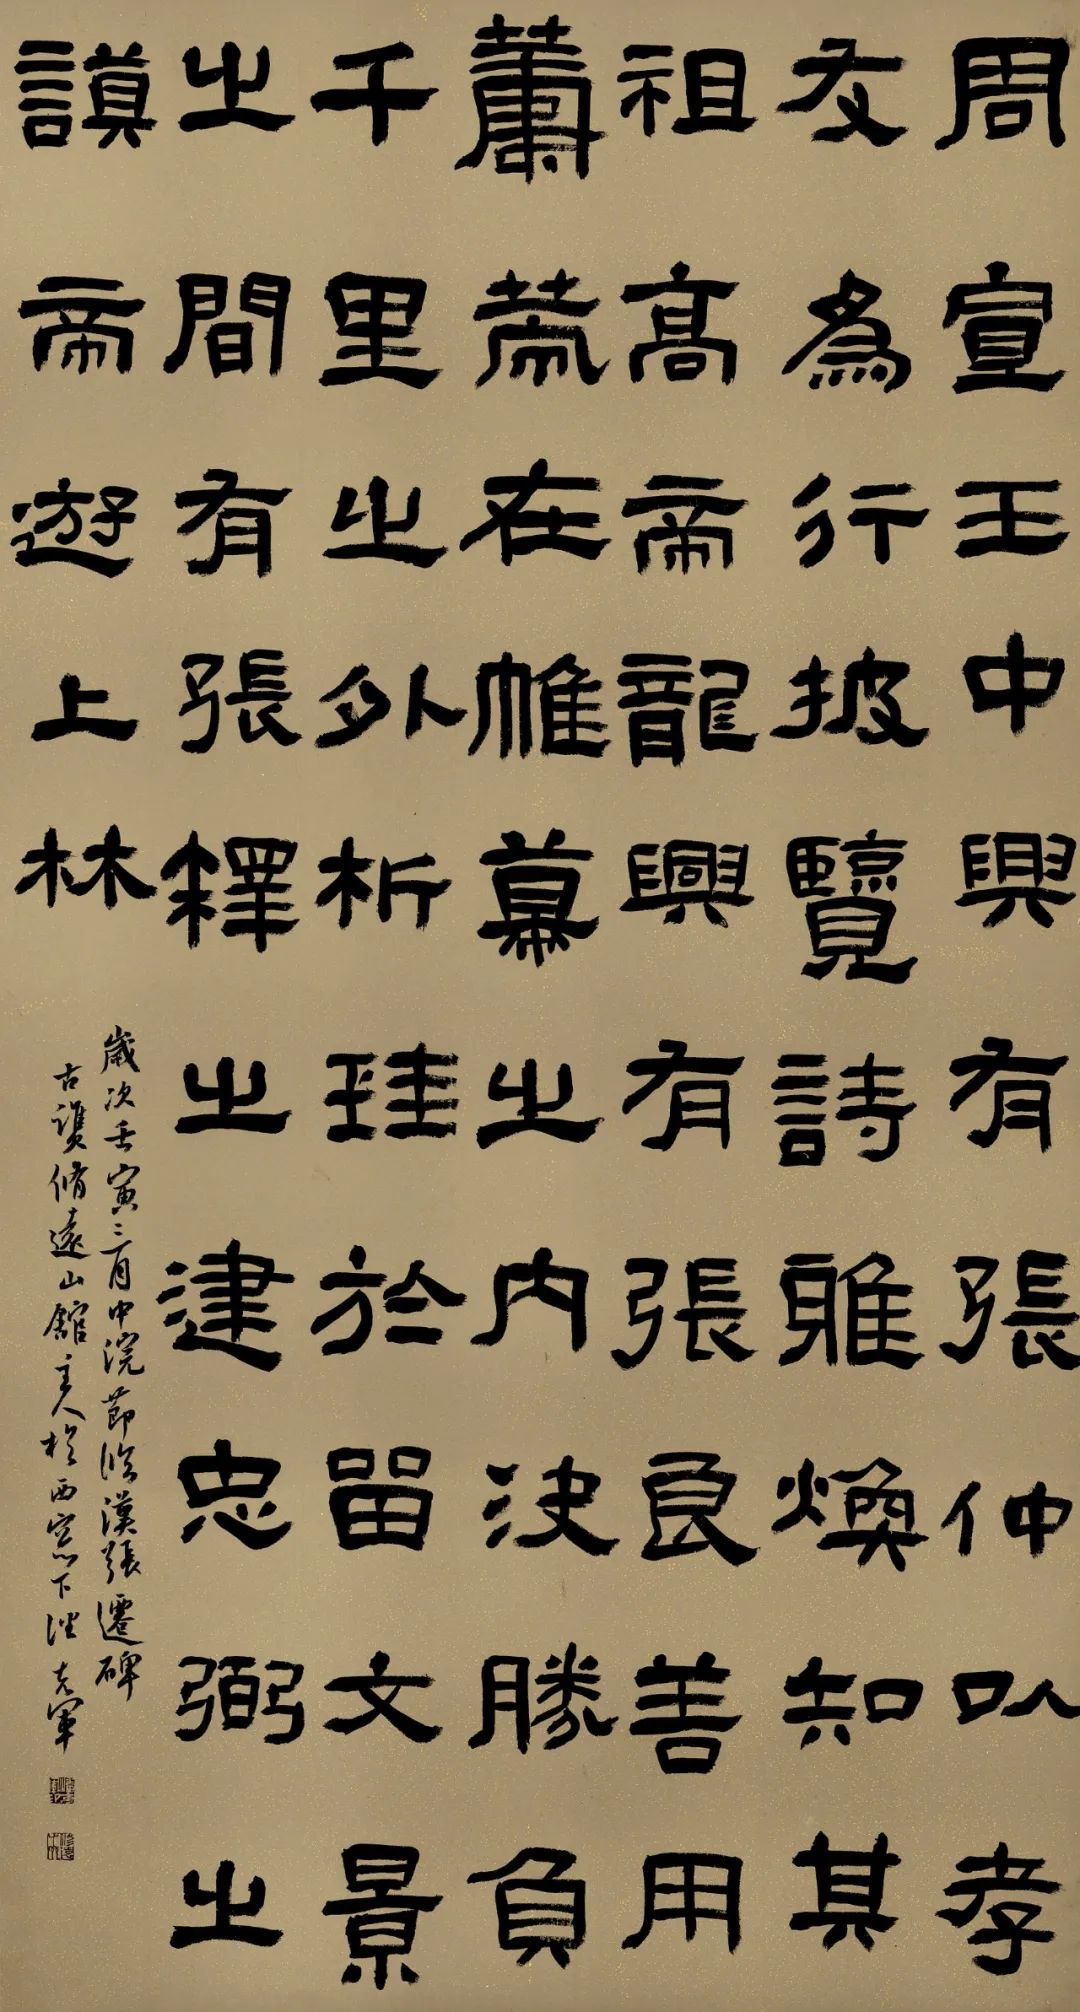 周宣王中興有張仲以孝
友為行披覽詩雅煥知其
祖高帝龍興有張良善用
蕭蕭在帷幕之內決勝負
千里之外析珪於留文景
之間有張釋之建忠弼之
謨帝遊上林
歲次壬寅三月中浣節臨漢張遷碑
古譙脩遠山館主人於西窗下